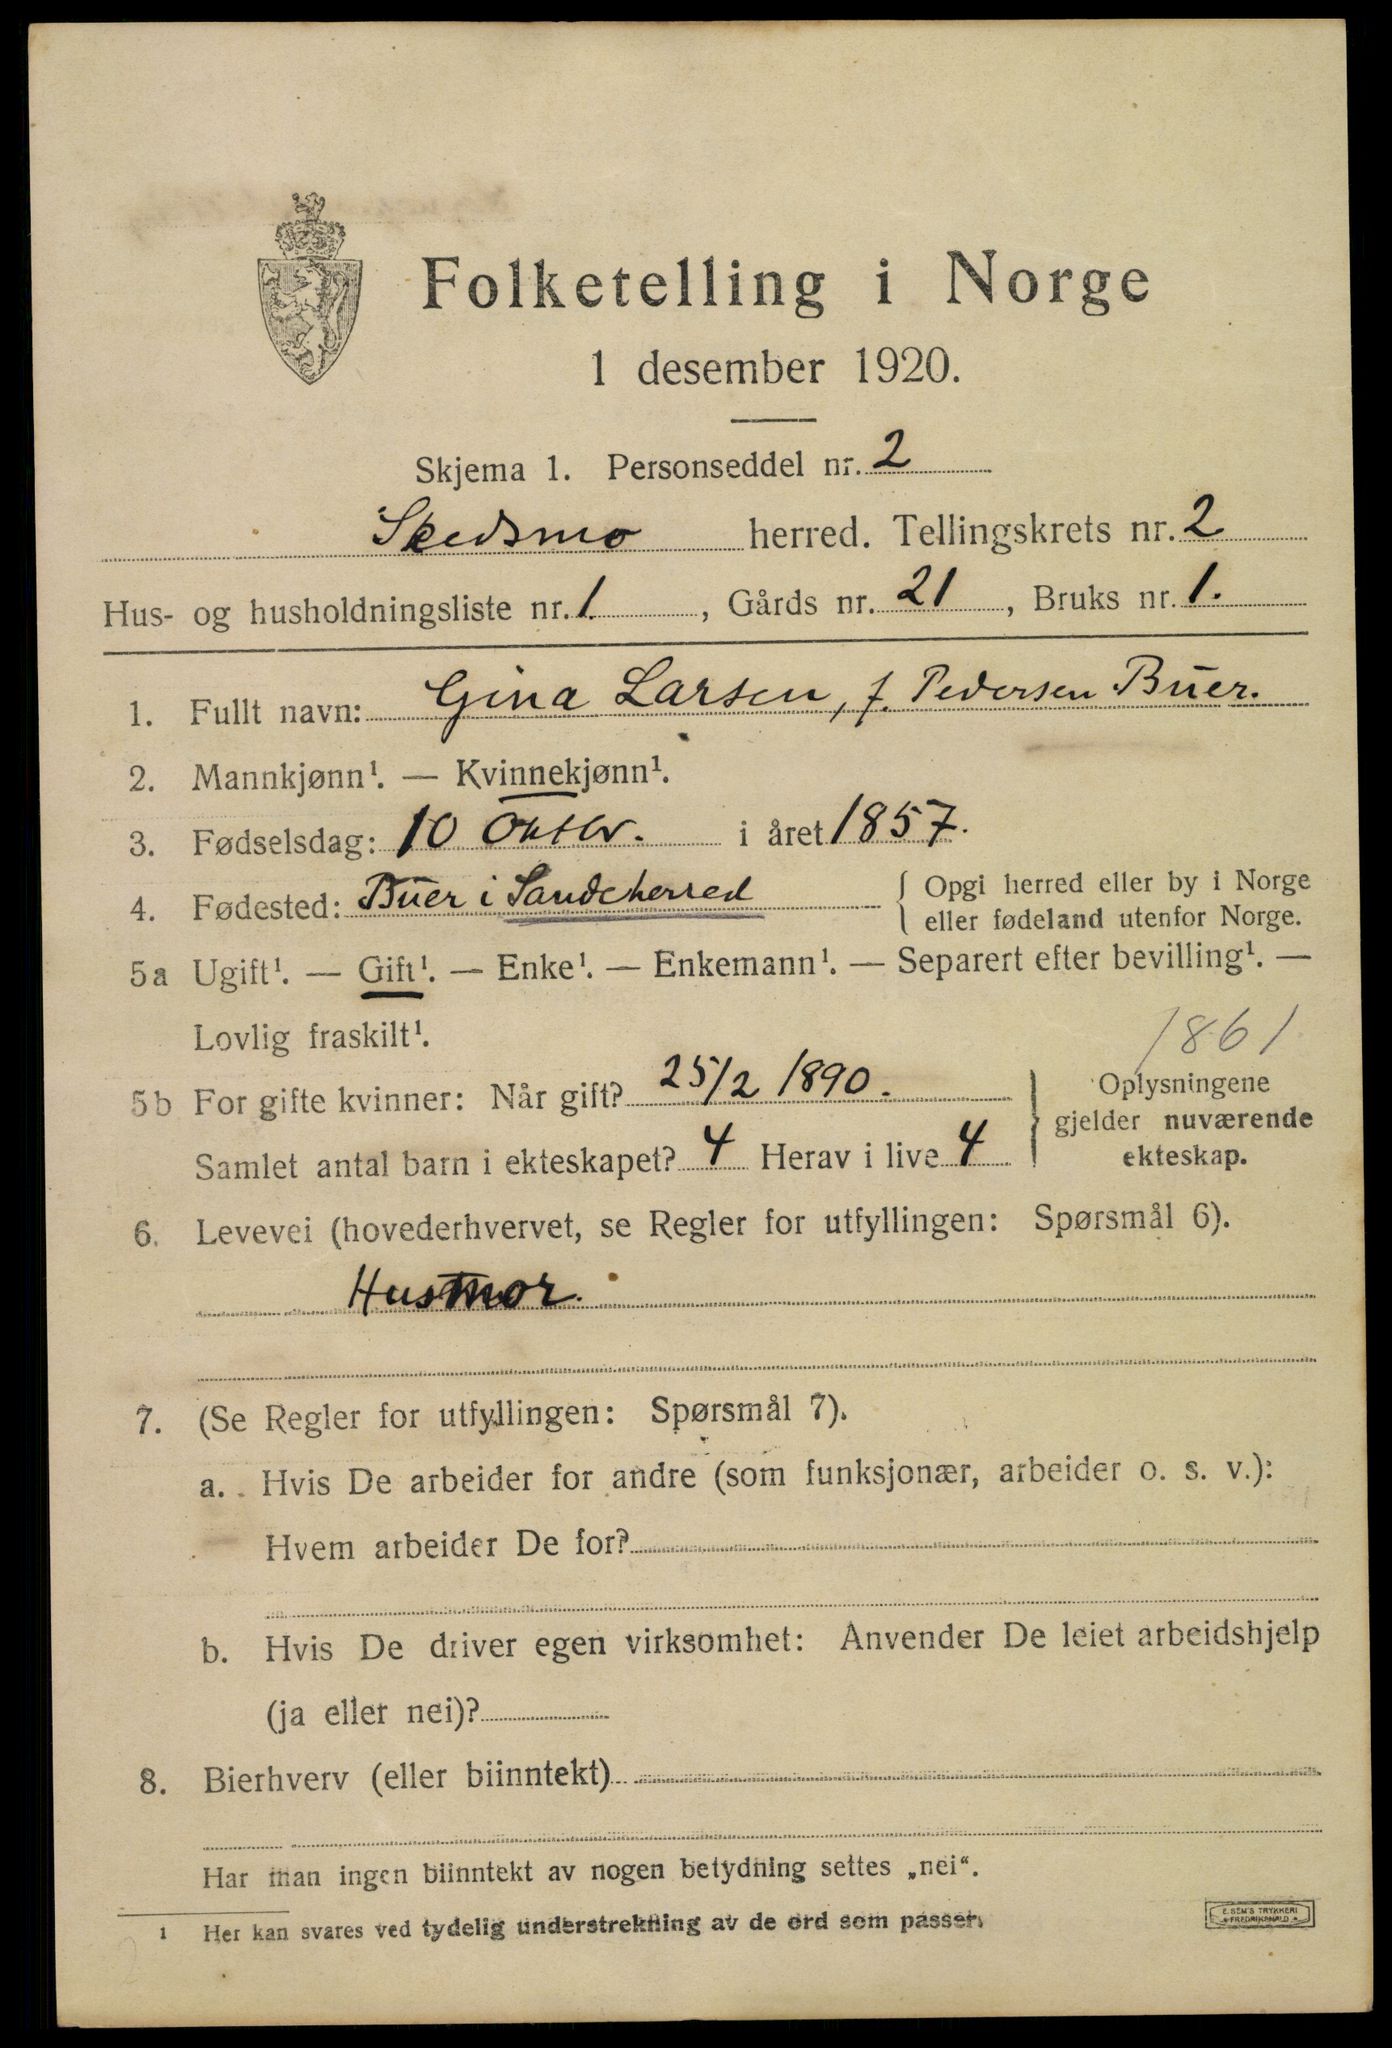 Folketelling i Norge
1 desember 1920.
Skjema 1. Personseddel nr. 2
Skedsmo herred. Tellingskrets nr. 2
Hus- og husholdningsliste nr. 1. , Gårds nr. 21 , Bruks nr. 1.
1. Fullt navn: Gina Larsen, f. Pedersen Buer.
2. Mannkjønn¹. — Kvinnekjønn¹.
3. Fødselsdag: 10 Oktbr. i året 1857.
4. Fødested: Buer i Sandeherred { Opgi herred eller by i Norge
eller fødeland utenfor Norge.
5a Ugift¹. — Gift¹. — Enke¹. — Enkemann¹. — Separert efter bevilling¹. —
Lovlig fraskilt¹.
1861
5b For gifte kvinner: Når gift? 25/2 1890. } Oplysningene
gjelder nuværende
Samlet antal barn i ekteskapet? 4 Herav i live 4 ekteskap.
6. Levevei (hovederhvervet, se Regler for utfyllingen: Spørsmål 6).
Husmor.
7. (Se Regler for utfyllingen: Spørsmål 7).
a. Hvis De arbeider for andre (som funksjonær, arbeider o. s. v.):
Hvem arbeider De for?
b. Hvis De driver egen virksomhet: Anvender De leiet arbeidshjelp
(ja eller nei)?
8. Bierhverv (eller biinntekt)
Har man ingen biinntekt av nogen betydning settes „nei“.
1 Her kan svares ved tydelig understrekning av de ord som passer.
E. SEM'S TRYKKERI
FREDRIKSHALD